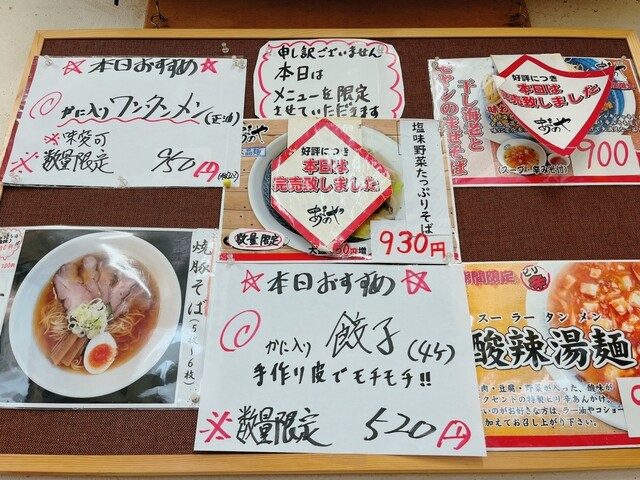 ☆本日おすすめ☆
かに入りワンタンメン(正油)
※味変可
※数量限定 950円(税込)
申し訳ございません
本日は
メニューを限定
させていただきます
好評につき
本日は
完売致しました
あらのや
塩味野菜たっぷりそば
数量限定
930円
干し海老と
好評につき
本日は
完売致しました
あらのや
(スープ・辛み付)
900
焼豚そば(5枚〜6枚)
☆本日おすすめ☆
かに入り 餃子(4ケ)
手作り皮でモチモチ!!
※数量限定 520円
期間限定
ピリ辛
スーラータンメン
酸辣湯麺
肉・豆腐・野菜が入った、酸味が
クセントの特製ピリ辛あんかけ。
いのがお好きな方は、ラー油やコショー
加えてお召し上がり下さい。